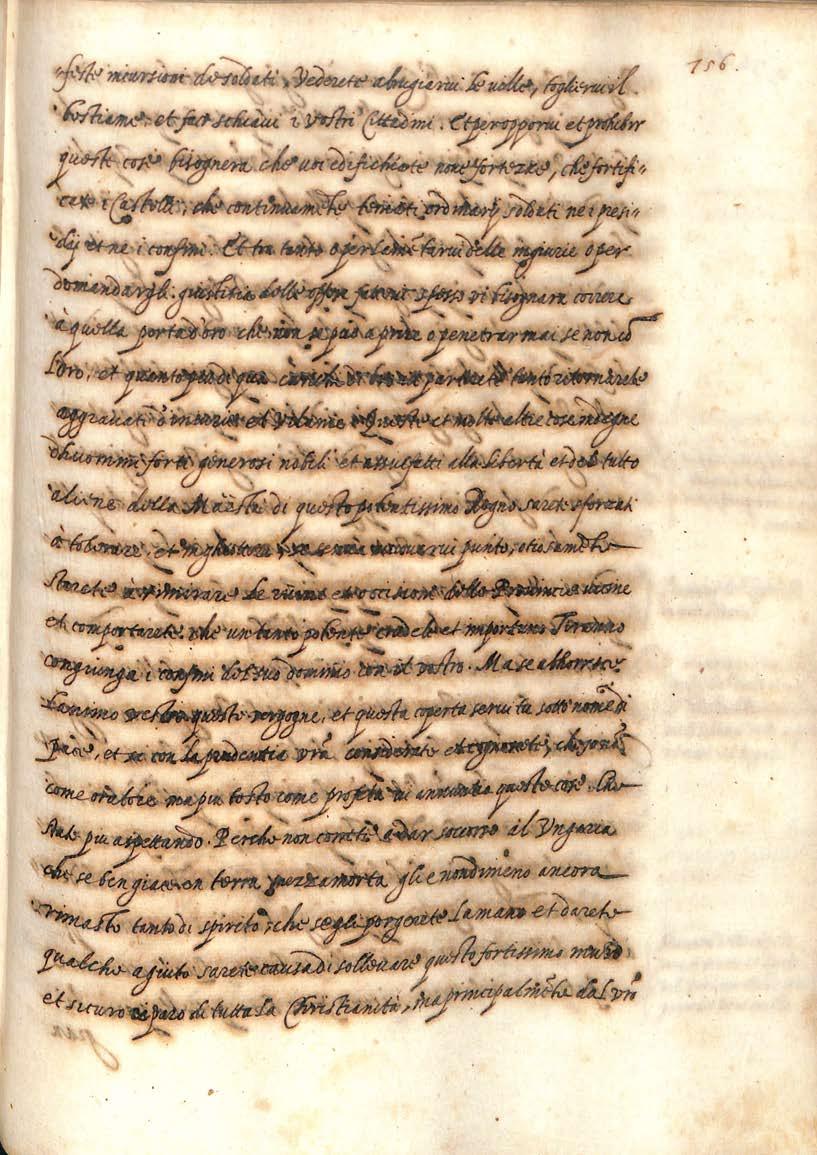 156.
feste incursioni de soldati, Vederete abrugiarui le uille, toglieruil
bestiame et far schiaui i vostri Cittadini. Et per opporui et prohibir
queste cose bisognerà che uoi edifichiate noue fortezze, che fortifi-
cate i Castelli, che continuamēte teniati ordinarij soldati ne i presi-
dij et ne i confini. Et tra tanto o per lamētarui delle ingiurie o per
domandargli giustitia delle offese fatteui spesso vi bisognara correre
à quella porta d'oro che non si può aprire o penetrar mai se non cō
l'oro, et quanto piu di qua carichi di oro ui partirete tanto ritornarete
aggrauati d'iniurie et vilanie. Queste et molte altre cose indegne
d'huomini forti generosi nobili et assuefatti alla libertà et del tutto
aliene della Maestà di questo potentissimo Regno sarete sforzati
à tolerare, et punto, otiosamēte
starete à rimirare le ruine et occisione delle Prouincie uicine
et comportarete che un tanto potente crudele et importuno Tiranno
congiunga i confini del suo dominio con il vostro. Ma se abhorrisce
l'animo vestro queste vergogne, et questa coperta seruitù sotto nome di
pace, et se con la prudentia vrā considerate et cognoscete, che io nō
come oratore ma piu tosto come profeta ui annuntio queste cose. Che
state piu aspettando. Perche non correte à dar soccorso al Vngaria
che se ben giace en terra mezza morta gli e nondimeno ancora
rimasto tanto di spirito, che se gli porgerete la mano et darete
qualche agiuto sarete causa di solleuare questo fortissimo muro
et sicuro riparo di tutta la Christianità, ma principalmēte del vrō
par